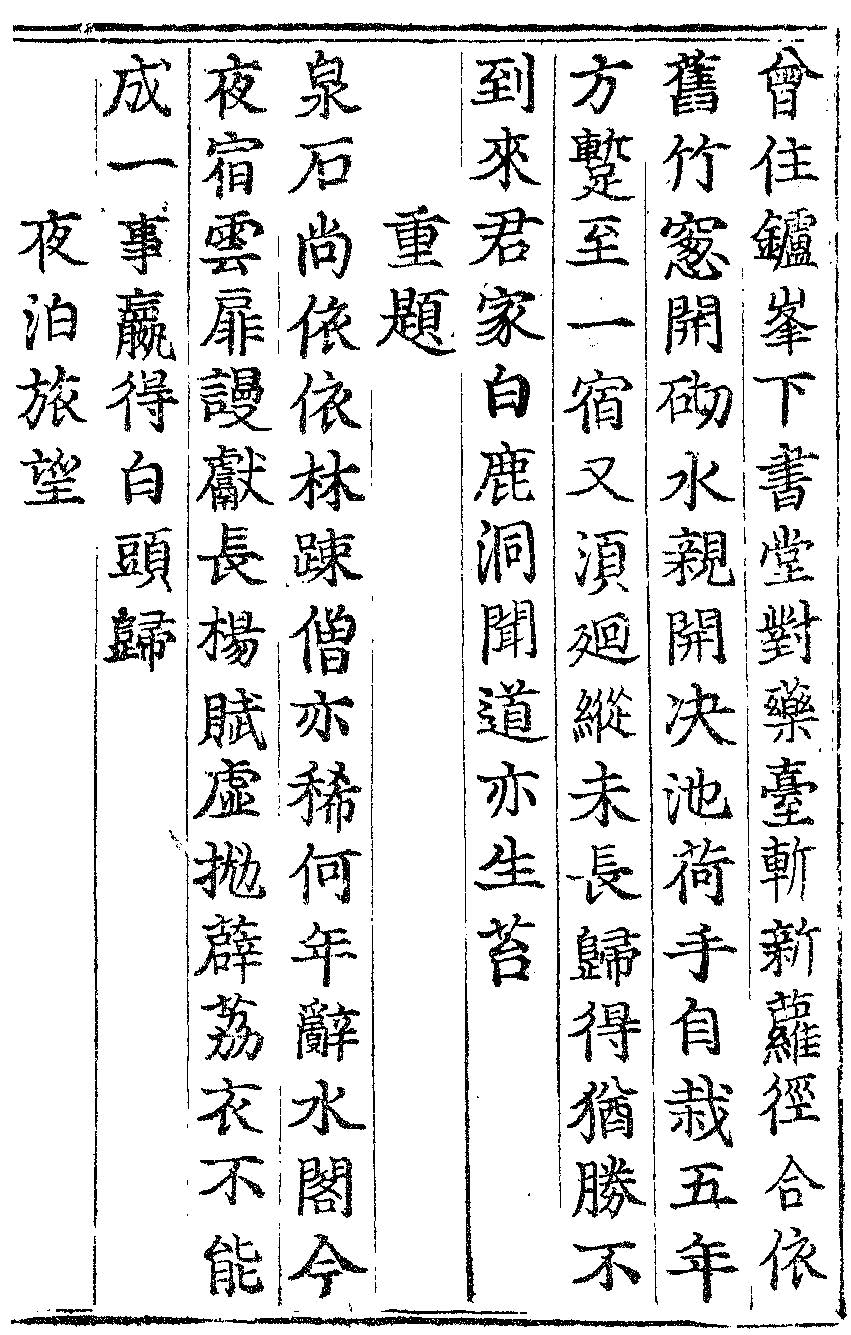 曾住鑪峯下書堂對藥臺斬新蘿徑合依
舊竹窓開砌水親開决池荷手自栽五年
方蹔至一宿又湏廻縱未長歸得猶勝不
到來君家白鹿洞聞道亦生苔
重題
泉石尚依依林踈僧亦稀何年辭水閣今
夜宿雲扉謾獻長楊賦虛抛薜荔衣不能
成一事贏得白頭歸
夜泊旅望